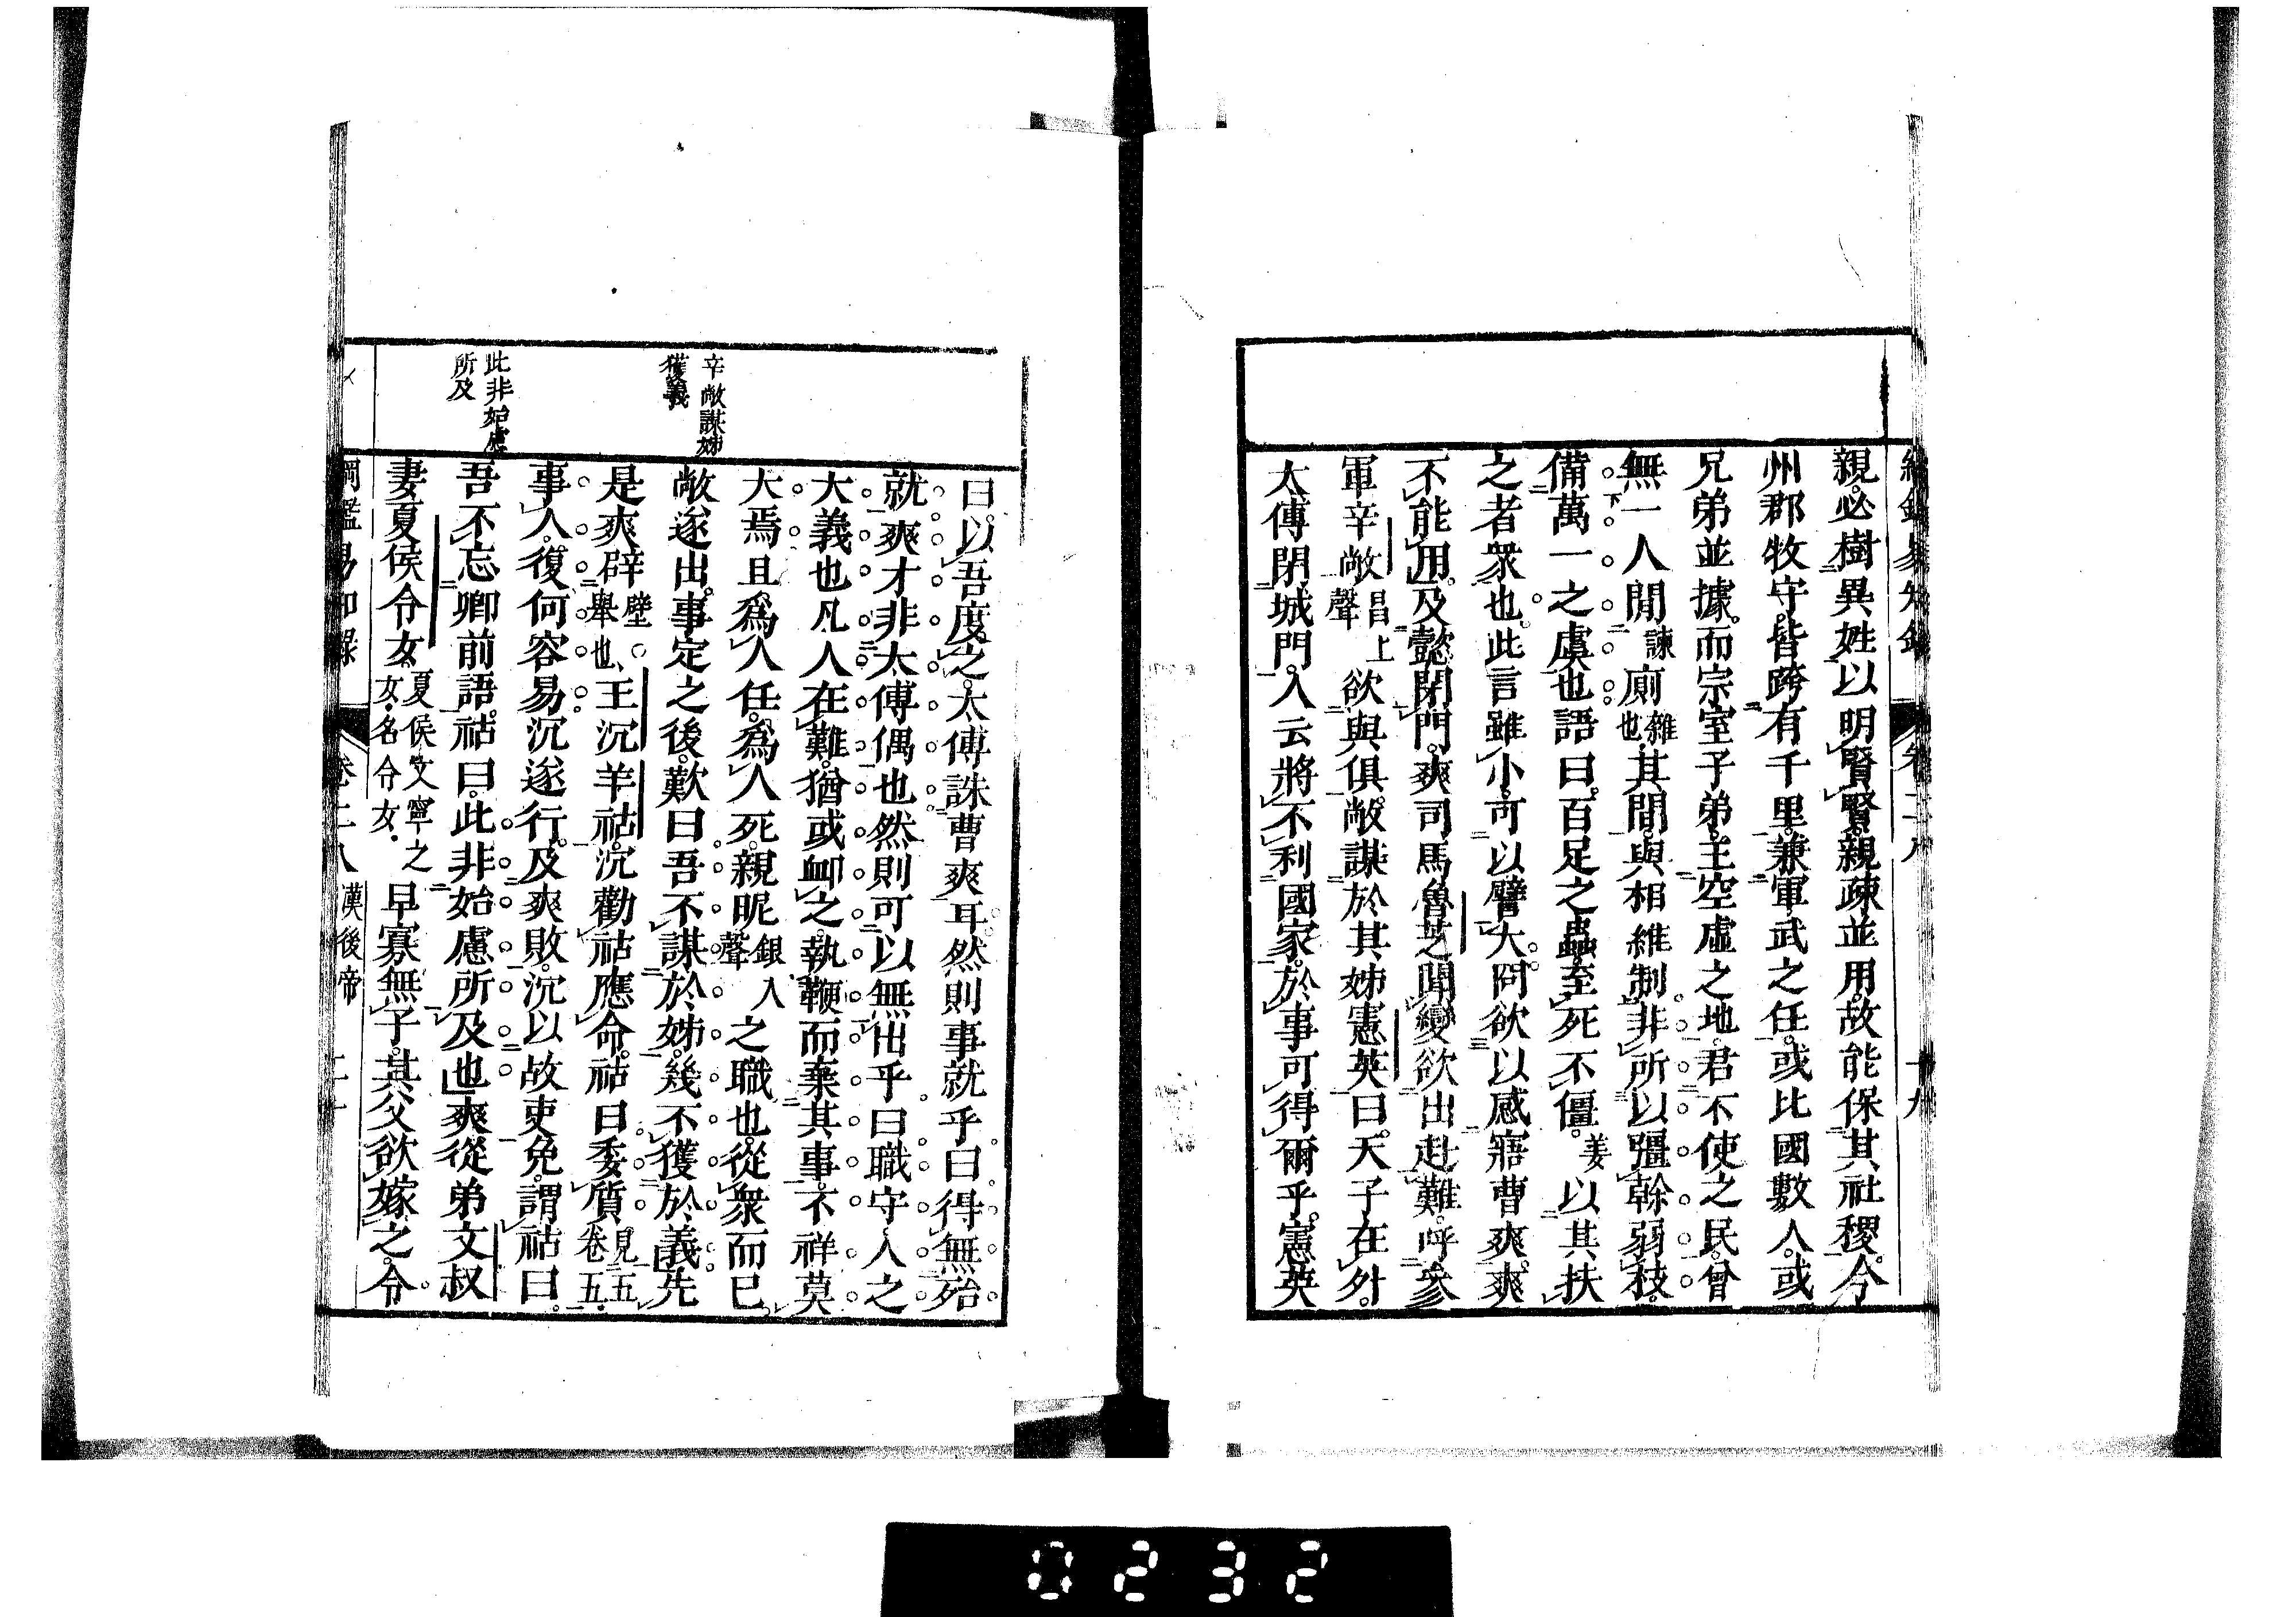 親必樹異姓以明賢賢親疎並用故能保其社稷今
州郡牧守皆跨有千里兼軍武之任或比國數人或
兄弟並據而宗室子弟王空虛之地君不使之民曾
無一人閒諫廁雜也其間與相維制非所以彊幹弱枝
備萬一之虞也語曰百足之蟲至死不僵姜以其扶
之者衆也此言雖小可以譬大冏欲以感寤曹爽爽
不能用及懿閉門爽司馬魯芝聞變欲出赴難呼參
軍辛敞昌上聲欲與俱敞謀於其姊憲英曰天子在外
太傅閉城門人云將不利國家於事可得爾乎憲英
十九
辛敞謀姊
獲義
此非始慮
所及
曰以吾度之太傅誅曹爽耳然則事就乎曰得無殆
就爽才非太傅偶也然則可以無出乎曰職守人之
大義也凡人在難猶或卹之執鞭而棄其事不祥莫
大焉且爲人任爲人死親昵銀入聲之職也從衆而已
敞遂出事定之後歎曰吾不謀於姊幾不獲於義先
是爽辟壁舉也王沉羊祜沉勸祜應命祜曰委質見五卷五
事人復何容易沉遂行及爽敗沉以故吏免謂祜曰
吾不忘卿前語祜曰此非始慮所及也爽從弟文叔
妻夏侯令女夏侯文寧之女名令女早寡無子其父欲嫁之令
綱鑑易知錄 卷二八 漢後帝 二十